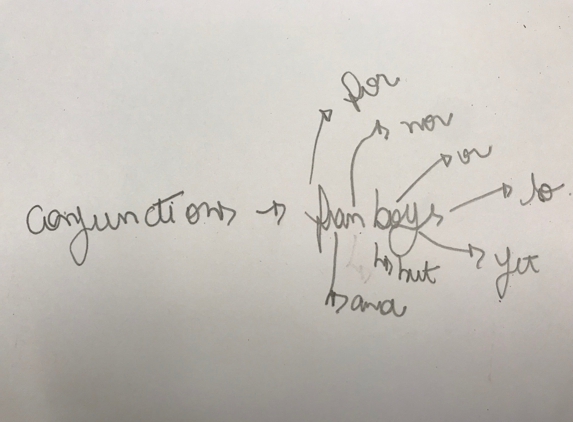 for
nor
or
conjunctions → fanboys
so
yet
but
and